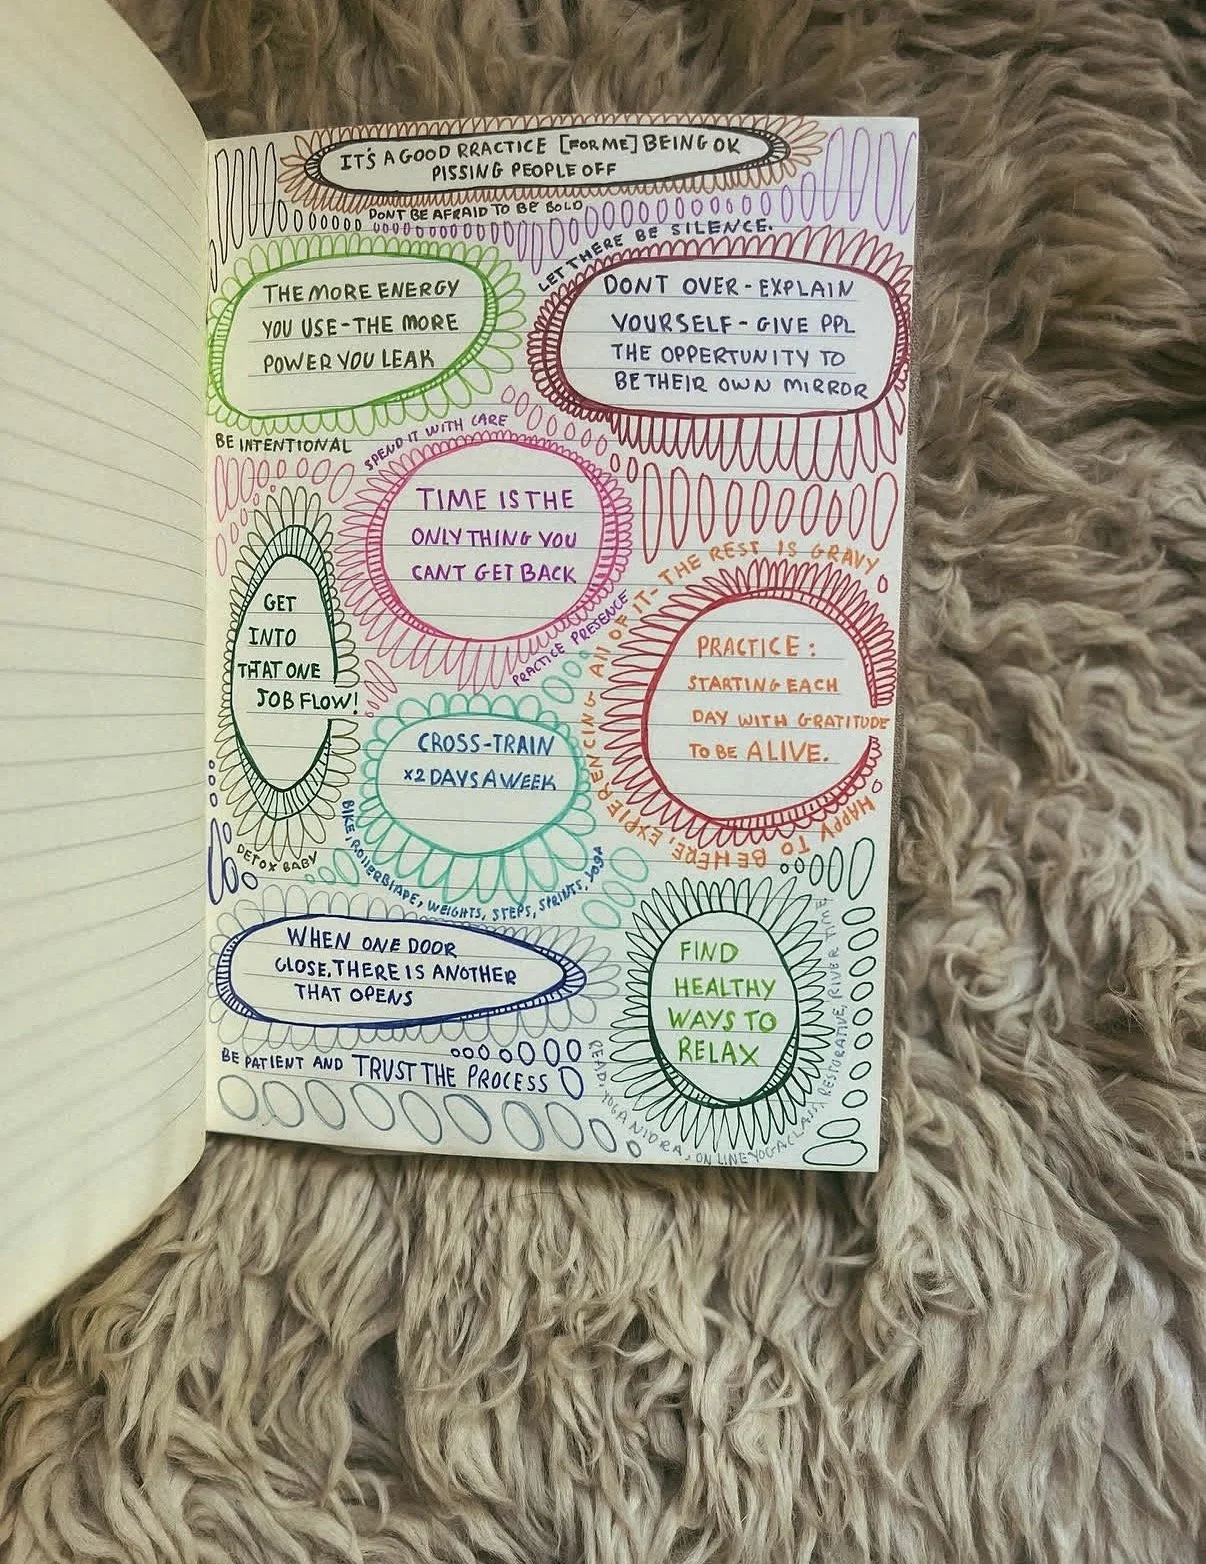 IT'S A GOOD RRACTICE [FOR ME] BEING OK
PISSING PEOPLE OFF
DONT BE AFRAID TO BE BOLD
LET THERE BE SILENCE.
THE MORE ENERGY
YOU USE - THE MORE
POWER YOU LEAK
BE INTENTIONAL
DONT OVER - EXPLAIN
YOURSELF - GIVE PPL
THE OPPERTUNITY TO
BE THEIR OWN MIRROR
SPEND IT WITH CARE
TIME IS THE
ONLY THING YOU
CANT GET BACK
PRACTICE PRESENCE
GET
INTO
THAT ONE
JOB FLOW!
DETOX BABY
PRACTICE:
STARTING EACH
DAY WITH GRATITUDE
TO BE ALIVE.
HAPPY TO BE HERE, EXPIERENCING All OF IT - THE REST IS GRAVY
CROSS-TRAIN
x2 DAYS A WEEK
BIKE, WEIGHTS, STEPS, SPRINTS, YOGA
WHEN ONE DOOR
CLOSE, THERE IS ANOTHER
THAT OPENS
BE PATIENT AND TRUST THE PROCESS
FIND
HEALTHY
WAYS TO
RELAX
YOGA NIDRA, ON LINE YOGA CLASS, RESTORATIVE, RIVER TIME